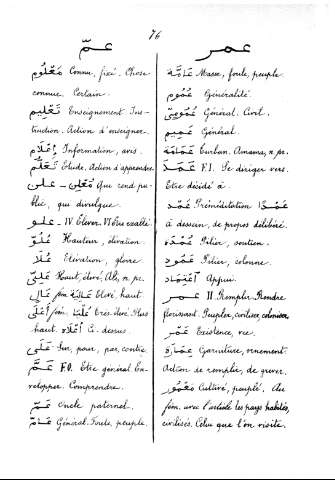 76
عمّ
مَعْلُوم Connu, fixé. Chose
connue. Certain.
تَعْلِيم Enseignement. Ins-
truction. Action d'enseigner.
إِعْلَام Information, avis.
تَعَلُّم Etude. Action d'apprendre.
مُعْلِن - على Que rend pu-
blic, qui divulgue.
علو - IV Elever. VI Etre exalté
عُلُوّ Hauteur, élévation.
عَلَاء Elévation, gloire.
عَلِيّ Haut, élevé, Ali, n. pr.
عَالِي fém. عَالِيَة Elevé, haut.
أَعْلَى fém. عُلْيَا Très élevé. Plus
haut. أَعْلَاه Ci-dessus.
عَلَى Sur, pour, par, contre.
عَمَّ F.O. Etre général. En-
velopper. Comprendre.
عَمّ Oncle paternel.
عَامّ Général. Foule, peuple.
عمر
عَامَّة Masse, foule, peuple.
عُمُوم Généralité.
عُمُومِيّ Général. Civil.
عَمِيم Général.
عِمَامَة Turban. Amama, n. pr.
عَمَدَ F.I. Se diriger vers.
Etre décidé à.
عَمْد Préméditation عَمْدًا
à dessein, de propos délibéré.
عُمْدَة Pilier, soutien.
عَمُود Pilier, colonne.
اِعْتِمَاد Appui.
عمر II Remplir. Rendre
florissant. Peupler, civiliser, coloniser.
عُمْر Existence, vie.
عِمَارَة Garniture, ornement.
Action de remplir, de garnir.
مَعْمُور Cultivé, peuplé. Au
fém. avec l'article les pays habités,
civilisés. Celui que l'on visite.